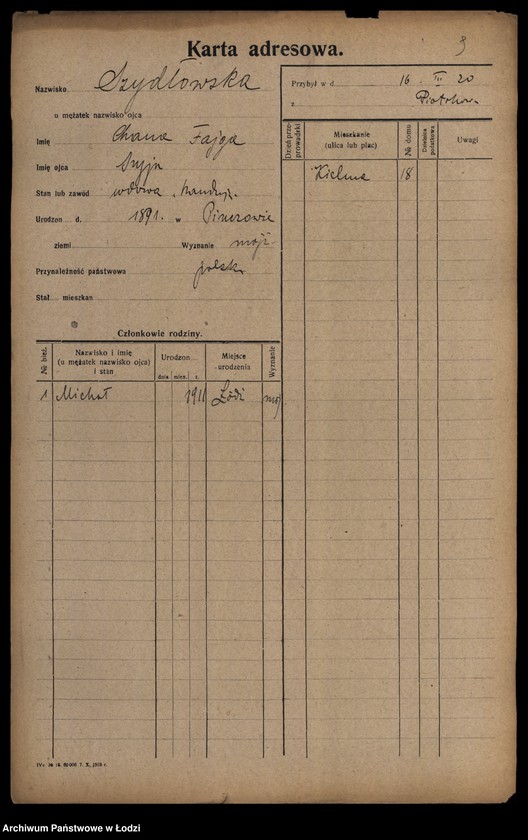 Karta adresowa.
9
Nazwisko Szydłowska
u mężatek nazwisko ojca
Imię Chana Fajga
Imię ojca Szyja
Stan lub zawód wdowa, handluj.
Urodzon d. 1891. w
ziemi Wyznanie mojż.
Przynależność państwowa polska
Stał mieszkan
Członkowie rodziny.
№ bież. Nazwisko i imię (u mężatek nazwisko ojca) i stan Urodzon dnia mies. r. Miejsce urodzenia Wyznanie
1 Michał 1911 Łódź moj
IVa № 18. 60000. 7. X. 1918 r.
Przybył w d 16 III 20
z Piotrkow
Dzień przeprowadzki Mieszkanie (ulica lub plac) № domu Dzielnica podatkowa Uwagi
Kielma 18
Archiwum Państwowe w Łodzi